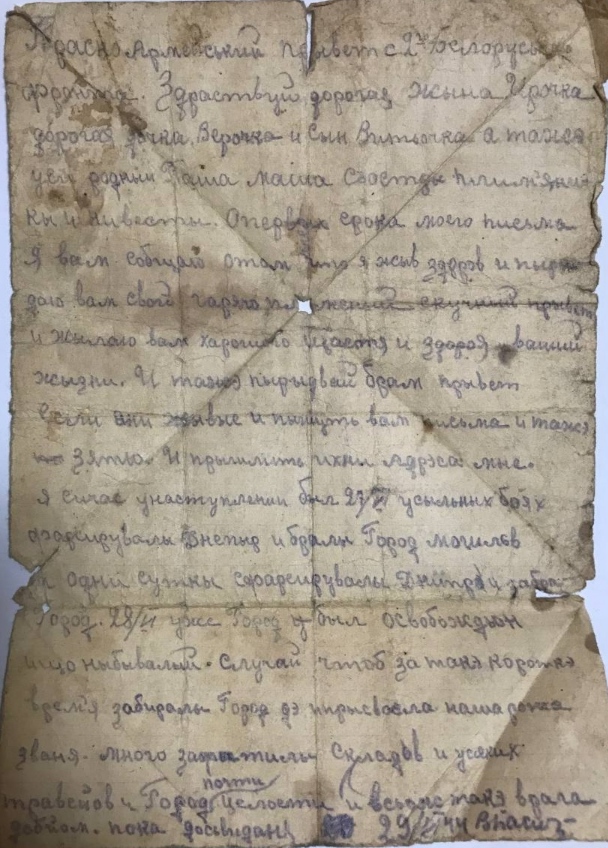 Красно Армейський прывет с 2го Белоруського
фронта. Здраствуй дорогая жына Ирочка
дорогая дочка Верочка и сын Витьочка а также
усй родный Паша маша
кы и нивесты. Опервых срока моего письма
я вам собщаю отом што я жыв здоров и пыры
даю вам свой гарячо скучний прывет
и жылаю вам харошого щастя и здоровя вашый
жызни. И также пырыдвай брам прывет
Если они жывые и пышуть вам письма и также
зятю. И прышлить ихни адрэса мне.
я сичас унаступлении был 27/VI усыльных боях
фарсирувалы Днепыр и бралы Город могилев
одни суткы сфарсирувалы Днипро и забра
Город. 28/VI уже Город был освобождьон
ищо ныбывалый. Случай чтоб за такэ коротке
время забиралы Город дэ прысвоела наша
званя. много захватилы Складов и усяких
почти
Город целости и всьоже такэ врага
добйом. пока досвидания 29/VI 44